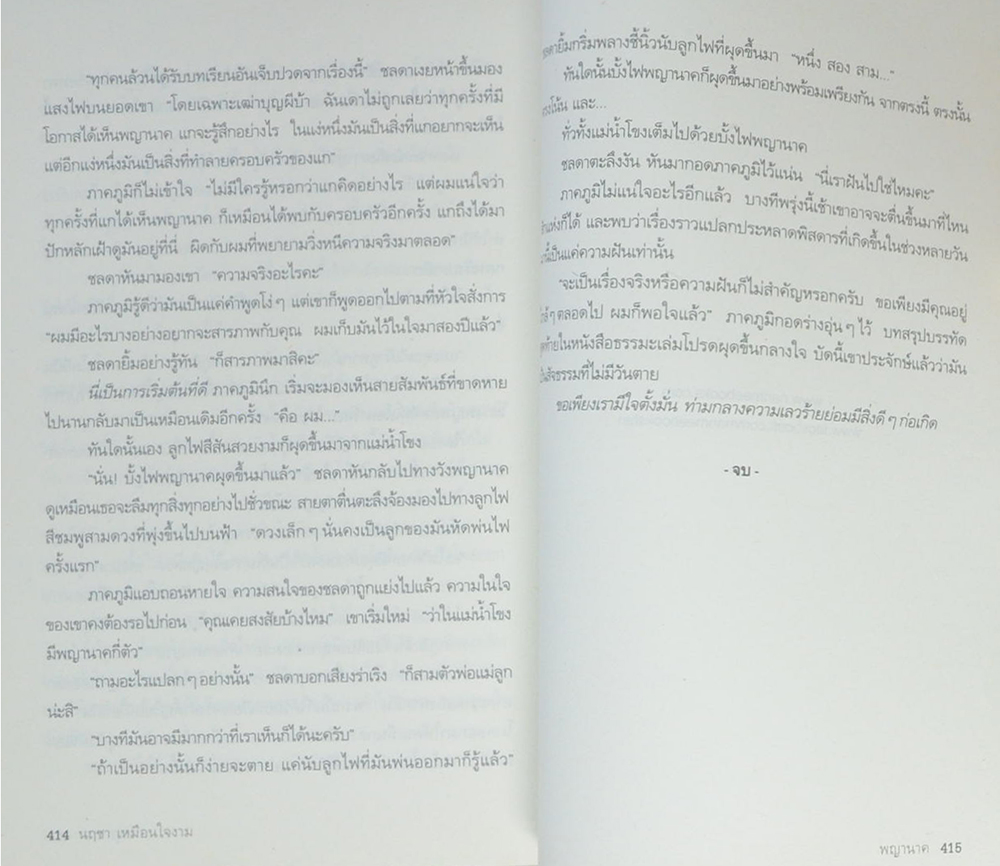 “ทุกคนล้วนได้รับบทเรียนอันเจ็บปวดจากเรื่องนี้” ชลดาเงยหน้าขึ้นมอง
แสงไฟบนยอดเขา “โดยเฉพาะเฒ่าบุญผีบ้า ฉันเดาไม่ถูกเลยว่าทุกครั้งที่มี
โอกาสได้เห็นพญานาค แกจะรู้สึกอย่างไร ในแง่หนึ่งมันเป็นสิ่งที่แกอยากจะเห็น
แต่อีกแง่หนึ่งมันเป็นสิ่งที่ทำลายครอบครัวของแก”
ภาคภูมิก็ไม่เข้าใจ “ไม่มีใครรู้หรอกว่าแกคิดอย่างไร แต่ผมแน่ใจว่า
ทุกครั้งที่แกได้เห็นพญานาค ก็เหมือนได้พบกับครอบครัวอีกครั้ง แกถึงได้มา
ปักหลักเฝ้าดูมันอยู่ที่นี่ ผิดกับผมที่พยายามวิ่งหนีความจริงมาตลอด”
ชลดาหันมามองเขา “ความจริงอะไรคะ”
ภาคภูมิรู้ดีว่ามันเป็นแค่คำพูดโง่ๆ แต่เขาก็พูดออกไปตามที่หัวใจสั่งการ
“ผมมีอะไรบางอย่างอยากจะสารภาพกับคุณ ผมเก็บมันไว้ในใจมาสองปีแล้ว”
ชลดายิ้มอย่างรู้ทัน “ก็สารภาพมาสิคะ”
นี่เป็นการเริ่มต้นที่ดี ภาคภูมินึก เริ่มจะมองเห็นสายสัมพันธ์ที่ขาดหาย
ไปนานกลับมาเป็นเหมือนเดิมอีกครั้ง “คือ ผม...”
ทันใดนั้นเอง ลูกไฟสีสันสวยงามก็ผุดขึ้นมาจากแม่น้ำโขง
“นั่น! บั้งไฟพญานาคผุดขึ้นมาแล้ว” ชลดาหันกลับไปทางวังพญานาค
ดูเหมือนเธอจะลืมทุกสิ่งทุกอย่างไปชั่วขณะ สายตาตื่นตะลึงจ้องมองไปทางลูกไฟ
สีชมพูสามดวงที่พุ่งขึ้นไปบนฟ้า “ดวงเล็กๆ นั่นคงเป็นลูกของมันหัดพ่นไฟ
ครั้งแรก”
ภาคภูมิแอบถอนหายใจ ความสนใจของชลดาถูกแย่งไปแล้ว ความในใจ
ของเขาคงต้องรอไปก่อน “คุณเคยสงสัยบ้างไหม” เขาเริ่มใหม่ “ว่าในแม่น้ำโขง
มีพญานาคกี่ตัว”
“ถามอะไรแปลกๆ อย่างนั้น” ชลดาบอกเสียงร่าเริง “ก็สามตัวพ่อแม่ลูก
น่ะสิ”
“บางทีมันอาจมีมากกว่าที่เราเห็นก็ได้นะครับ”
“ถ้าเป็นอย่างนั้นก็ง่ายจะตาย แค่นับลูกไฟที่มันพ่นออกมาก็รู้แล้ว”
414 นฤชา เหมือนใจงาม
ชลดายิ้มกริ่มพลางชี้นิ้วนับลูกไฟที่ผุดขึ้นมา “หนึ่ง สอง สาม...”
ทันใดนั้นบั้งไฟพญานาคก็ผุดขึ้นมาอย่างพร้อมเพรียงกัน จากตรงนี้ ตรงนั้น
ตรงโน้น และ...
ทั่วทั้งแม่น้ำโขงเต็มไปด้วยบั้งไฟพญานาค
ชลดาตะลึงงัน หันมากอดภาคภูมิไว้แน่น “นี่เราฝันไปใช่ไหมคะ”
ภาคภูมิไม่แน่ใจอะไรอีกแล้ว บางทีพรุ่งนี้เช้าเขาอาจจะตื่นขึ้นมาที่ไหน
แห่งก็ได้ และพบว่าเรื่องราวแปลกประหลาดพิสดารที่เกิดขึ้นในช่วงหลายวัน
นี้เป็นแค่ความฝันเท่านั้น
“จะเป็นเรื่องจริงหรือความฝันก็ไม่สำคัญหรอกครับ ขอเพียงมีคุณอยู่
ใกล้ๆ ตลอดไป ผมก็พอใจแล้ว” ภาคภูมิกอดร่างอุ่นๆ ไว้ บทสรุปบรรทัด
สุดท้ายในหนังสือธรรมะเล่มโปรดผุดขึ้นกลางใจ บัดนี้เขาประจักษ์แล้วว่ามัน
สัจธรรมที่ไม่มีวันตาย
ขอเพียงเรามีใจตั้งมั่น ท่ามกลางความเลวร้ายย่อมมีสิ่งดีๆ ก่อเกิด
- จบ -
พญานาค 415